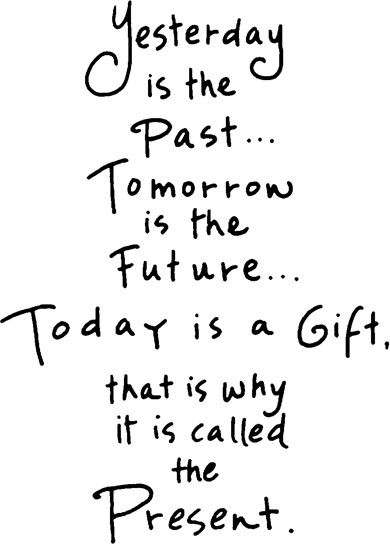 Yesterday
is the
Past...
Tomorrow
is the
Future...
Today is a Gift,
that is why
it is called
the
Present.